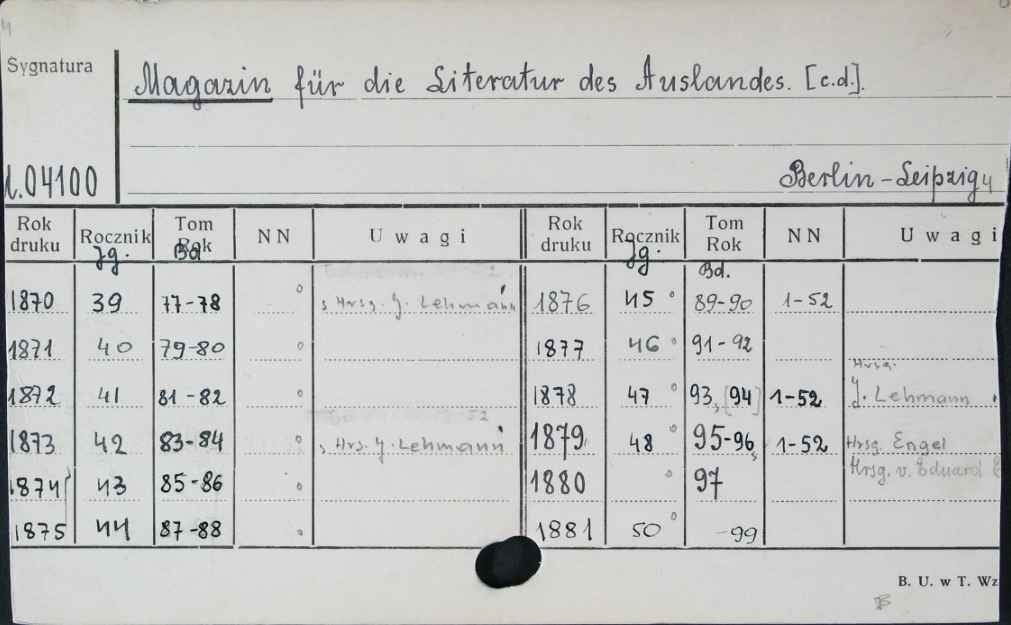 Sygnatura
Magazin für die Literatur des Auslandes. [c.d.].
04100
Berlin-Leipzig
Rok druku Rocznik Jg. Tom Rok Bd. NN Uwagi Rok druku Rocznik Jg. Tom Rok Bd. NN Uwagi
1870 39 77-78 Hrsg. J. Lehmann 1876 45 89-90 1-52
1871 40 79-80 1877 46 91-92
1872 41 81-82 1878 47 93, [94] 1-52 Hrsg. J. Lehmann
1873 42 83-84 Hrs. J. Lehmann 1879 48 95-96 1-52 Hrsg. Engel
1874 43 85-86 1880 97 Hrsg. v. Eduard E
1875 44 87-88 1881 50 -99
B. U. w T. Wz